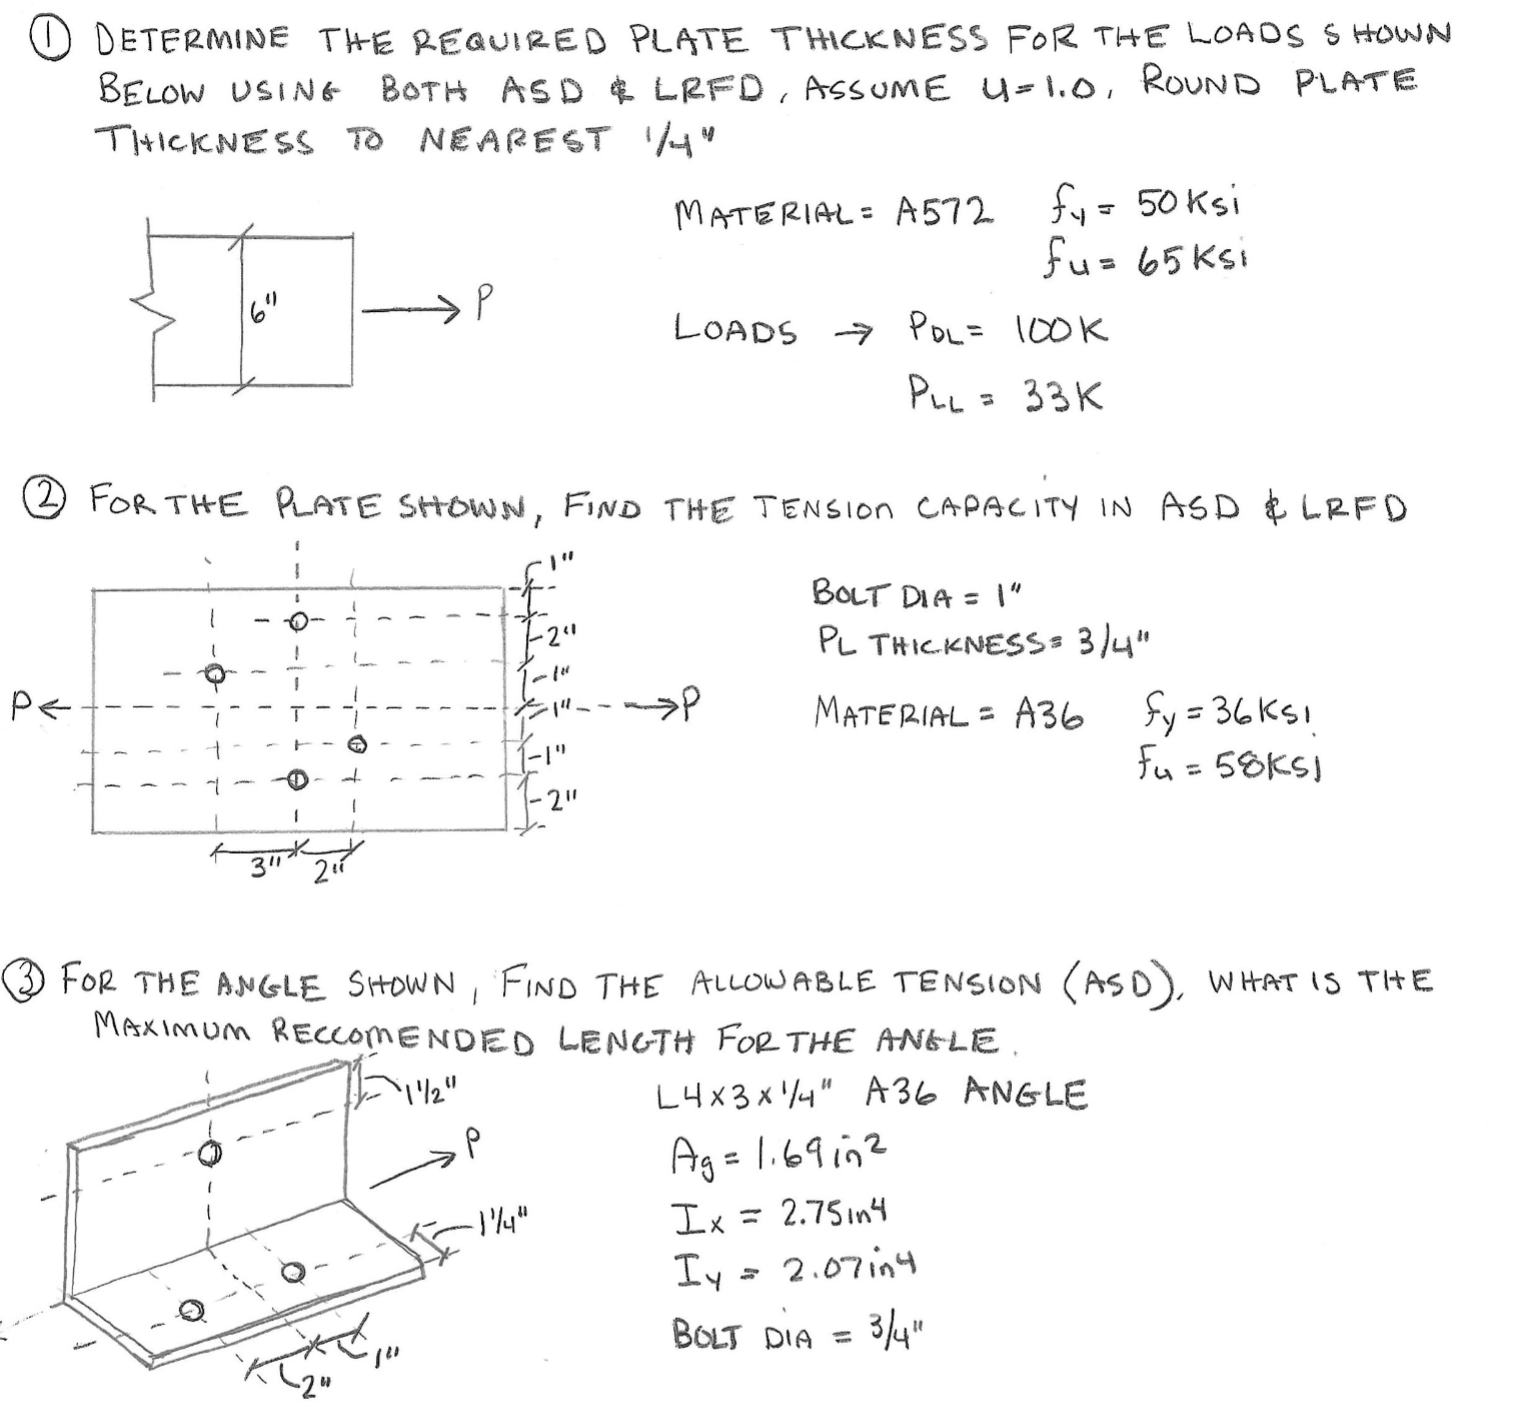 ① DETERMINE THE REQUIRED PLATE THICKNESS FOR THE LOADS SHOWN
BELOW USING BOTH ASD & LRFD, ASSUME U=1.0, ROUND PLATE
THICKNESS TO NEAREST 1/4"
MATERIAL = A572 fy = 50 ksi
fu = 65 ksi
6"
P
LOADS → PDL = 100K
PLL = 33K
② FOR THE PLATE SHOWN, FIND THE TENSION CAPACITY IN ASD & LRFD
1"
BOLT DIA = 1"
2"
PL THICKNESS = 3/4"
1"
P
1"
P
MATERIAL = A36 fy = 36 ksi
1"
fu = 58 ksi
2"
3" 2"
③ FOR THE ANGLE SHOWN, FIND THE ALLOWABLE TENSION (ASD), WHAT IS THE
MAXIMUM RECCOMENDED LENGTH FOR THE ANGLE.
1 1/2"
L4x3x1/4" A36 ANGLE
P
Ag = 1.69 in2
1 1/4"
Ix = 2.75 in4
Iy = 2.07 in4
BOLT DIA = 3/4"
1"
2"